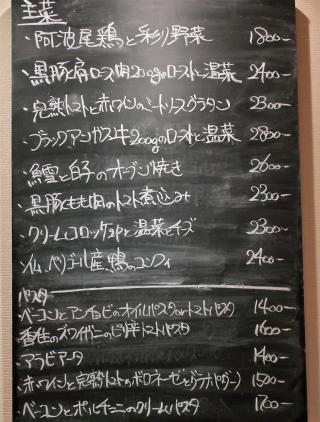 主菜
・阿波尾鶏と彩り野菜 1800-
・黒豚と肩ロース肉200gのローストと温菜 2400-
・完熟トマトと赤ワインのミートソースグラタン 2300-
・ブラックアンガス牛200gのローストと温菜 2800-
・鱈と白子のオーブン焼き 2600-
・黒豚もも肉のトマト煮込み 2300-
・クリームコロッケ2pと温菜とチーズ 2300-
・ペリゴール産鴨のコンフィ 2400-
パスタ
・ベーコンとアンチョビのオイルパスタorトマトパスタ 1400-
・香住のズワイガニのピリ辛トマトパスタ 1600-
・アラビアータ 1400-
・赤ワインと完熟トマトのボロネーゼとグラナパダーノ 1500-
・ベーコンとポルチーニのクリームパスタ 1700-